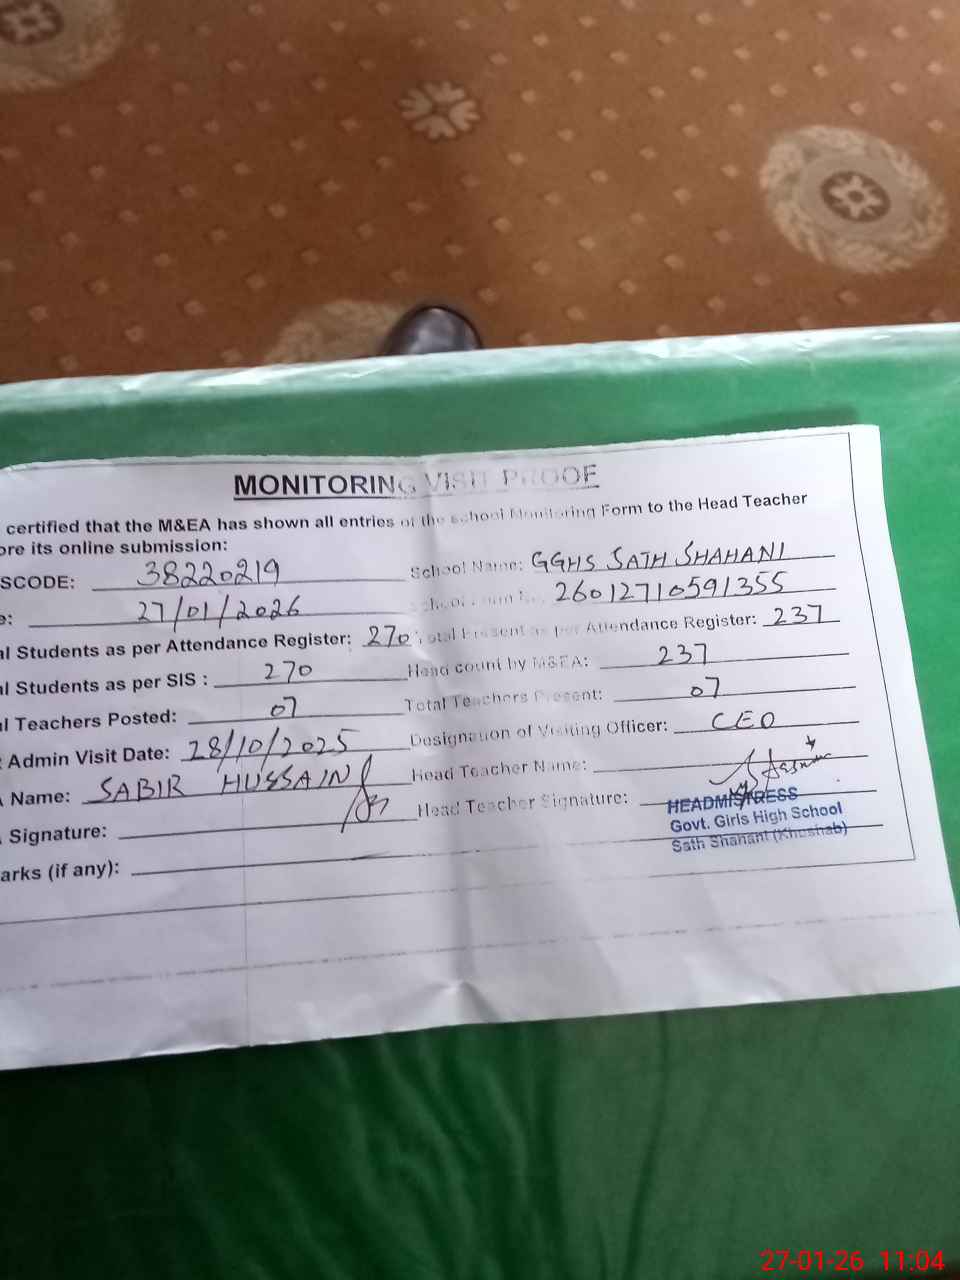 MONITORING VISIT PROOF
certified that the M&EA has shown all entries of the school Monitoring Form to the Head Teacher
ore its online submission:
SCODE: 38220219 School Name: GGHS SATH SHAHANI
e: 27/01/2026 26012710591355
al Students as per Attendance Register: 270 Total Present as per Attendance Register: 237
al Students as per SIS : 270 Head count by M&EA: 237
al Teachers Posted: 07 Total Teachers Present: 07
Admin Visit Date: 28/10/2025 Designation of Visiting Officer: CEO
Name: SABIR HUSSAIN Head Teacher Name:
Signature: Head Teacher Signature:
HEADMISTRESS
Govt. Girls High School
Sath Shahani (Khushab)
arks (if any):
27-01-26 11:04